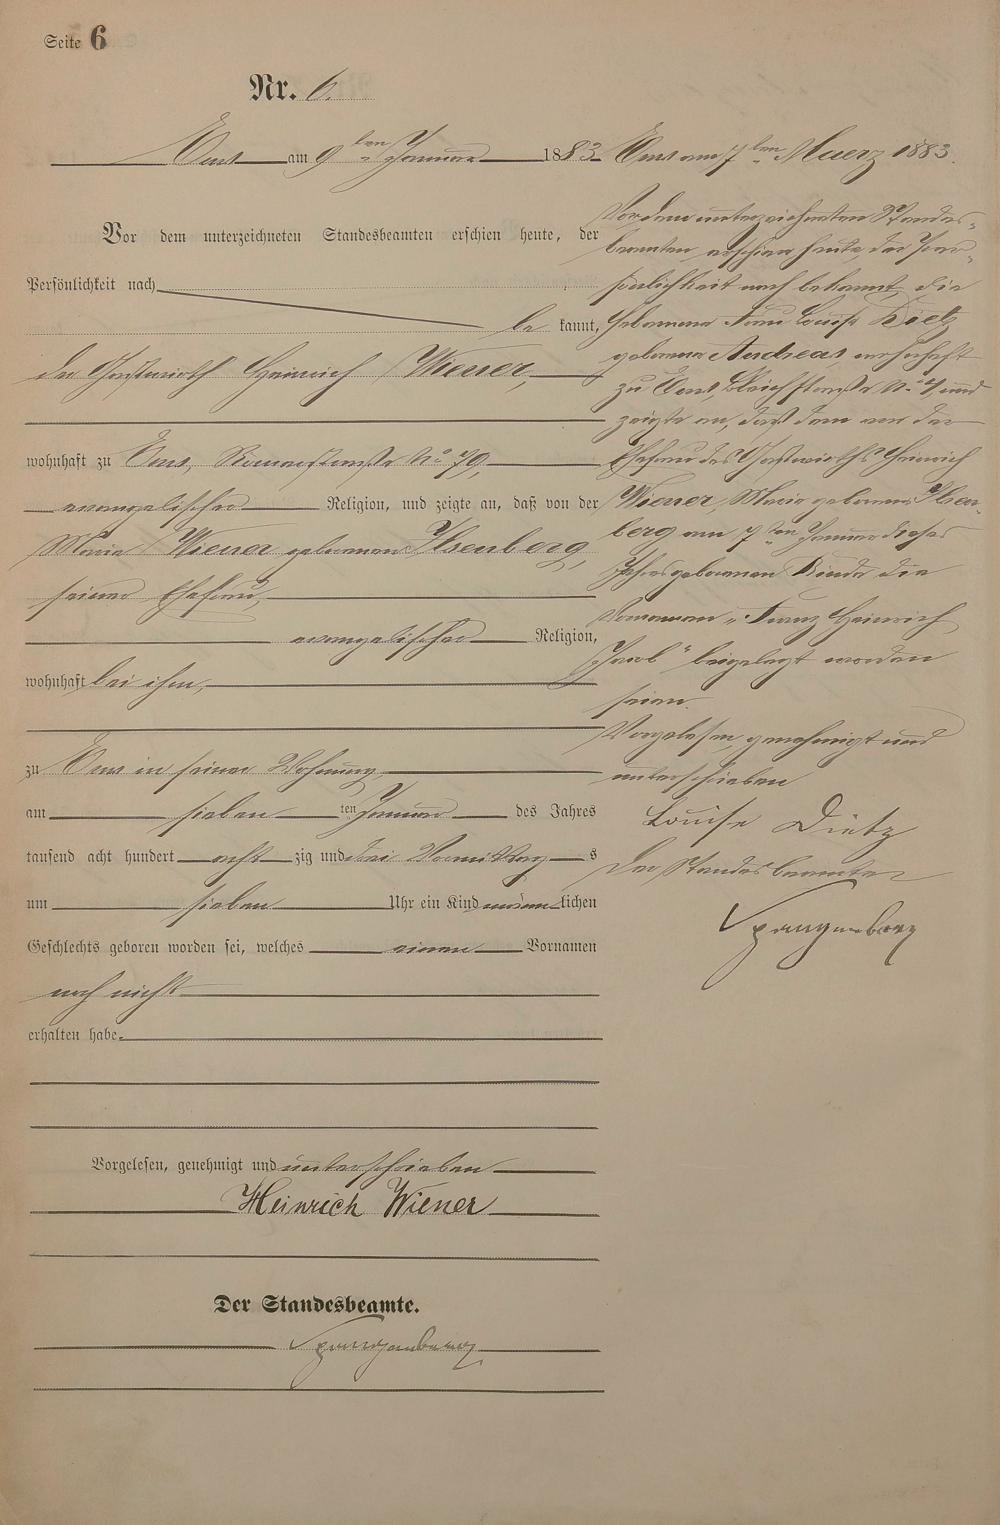 Seite 6
Nr. 6.
Ems am 9ten Januar 1883
Vor dem unterzeichneten Standesbeamten erschien heute, der
Persönlichkeit nach
be kannt,
der Gastwirth Heinrich Wiener,
wohnhaft zu Ems, Römerstraße No 79,
evangelischer Religion, und zeigte an, daß von der
Maria Wiener geborenen Isenberg,
seiner Ehefrau,
evangelischer Religion,
wohnhaft bei ihm,
zu Ems in seiner Wohnung,
am sieben ten Januar des Jahres
tausend acht hundert acht zig und drei Vormittag s
um sieben Uhr ein Kind männ lichen
Geschlechts geboren worden sei, welches einen Vornamen
noch nicht
erhalten habe.
Vorgelesen, genehmigt und unterschrieben
Heinrich Wiener
Der Standesbeamte.
Spangenberg
Ems am 7ten Maerz 1883.
Vor dem unterzeichneten Standes-
beamten erschien heute, der Per-
sönlichkeit nach bekannt, die
Hebamme Frau Louise Dietz
geborene Andreas, wohnhaft
zu Ems, Bleichstraße No 4, und
zeigte an, daß dem von der
Ehefrau des Gastwirths Heinrich
Wiener, Maria geborenen Isen-
berg am 7ten Januar dieses
Jahres geborenen Kinde die
Vornamen „Franz Heinrich
Jacob" beigelegt worden
seien.
Vorgelesen, genehmigt und
unterschrieben
Louise Dietz
Der Standesbeamte
Spangenberg